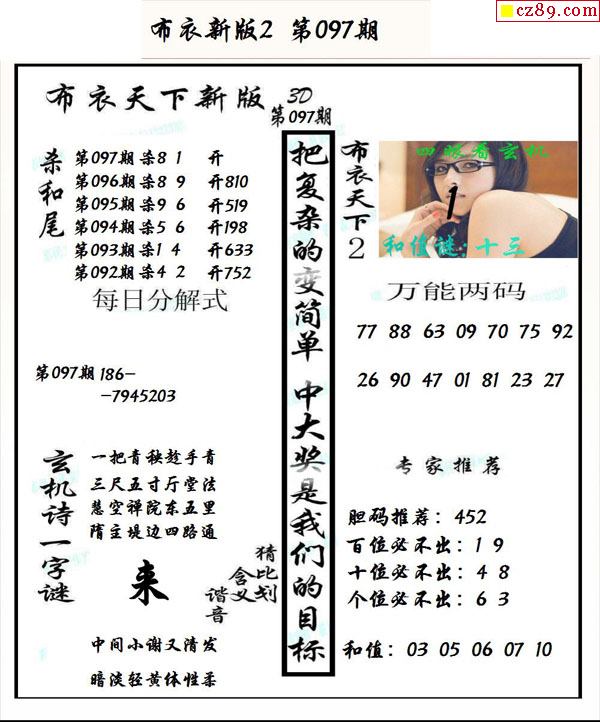 cz89.com
布衣新版2 第097期
布衣天下新版 3D
第097期
杀和尾
第097期杀8 1 开
第096期杀8 9 开810
第095期杀9 6 开519
第094期杀5 6 开198
第093期杀1 4 开633
第092期杀4 2 开752
每日分解式
第097期186-
-7945203
玄机诗一字谜
一把青秧趁手青
三尺五寸厅堂法
慧空禅院东五里
隋主堤边四路通
来
猜比划
含义
谐音
中间小谢又清发
暗淡轻黄体性柔
把复杂的变简单 中大奖是我们的目标
布衣天下2
四眼看玄机
1
和值谜:十三
万能两码
77 88 63 09 70 75 92
26 90 47 01 81 23 27
专家推荐
胆码推荐:452
百位必不出:1 9
十位必不出:4 8
个位必不出:6 3
和值:03 05 06 07 10